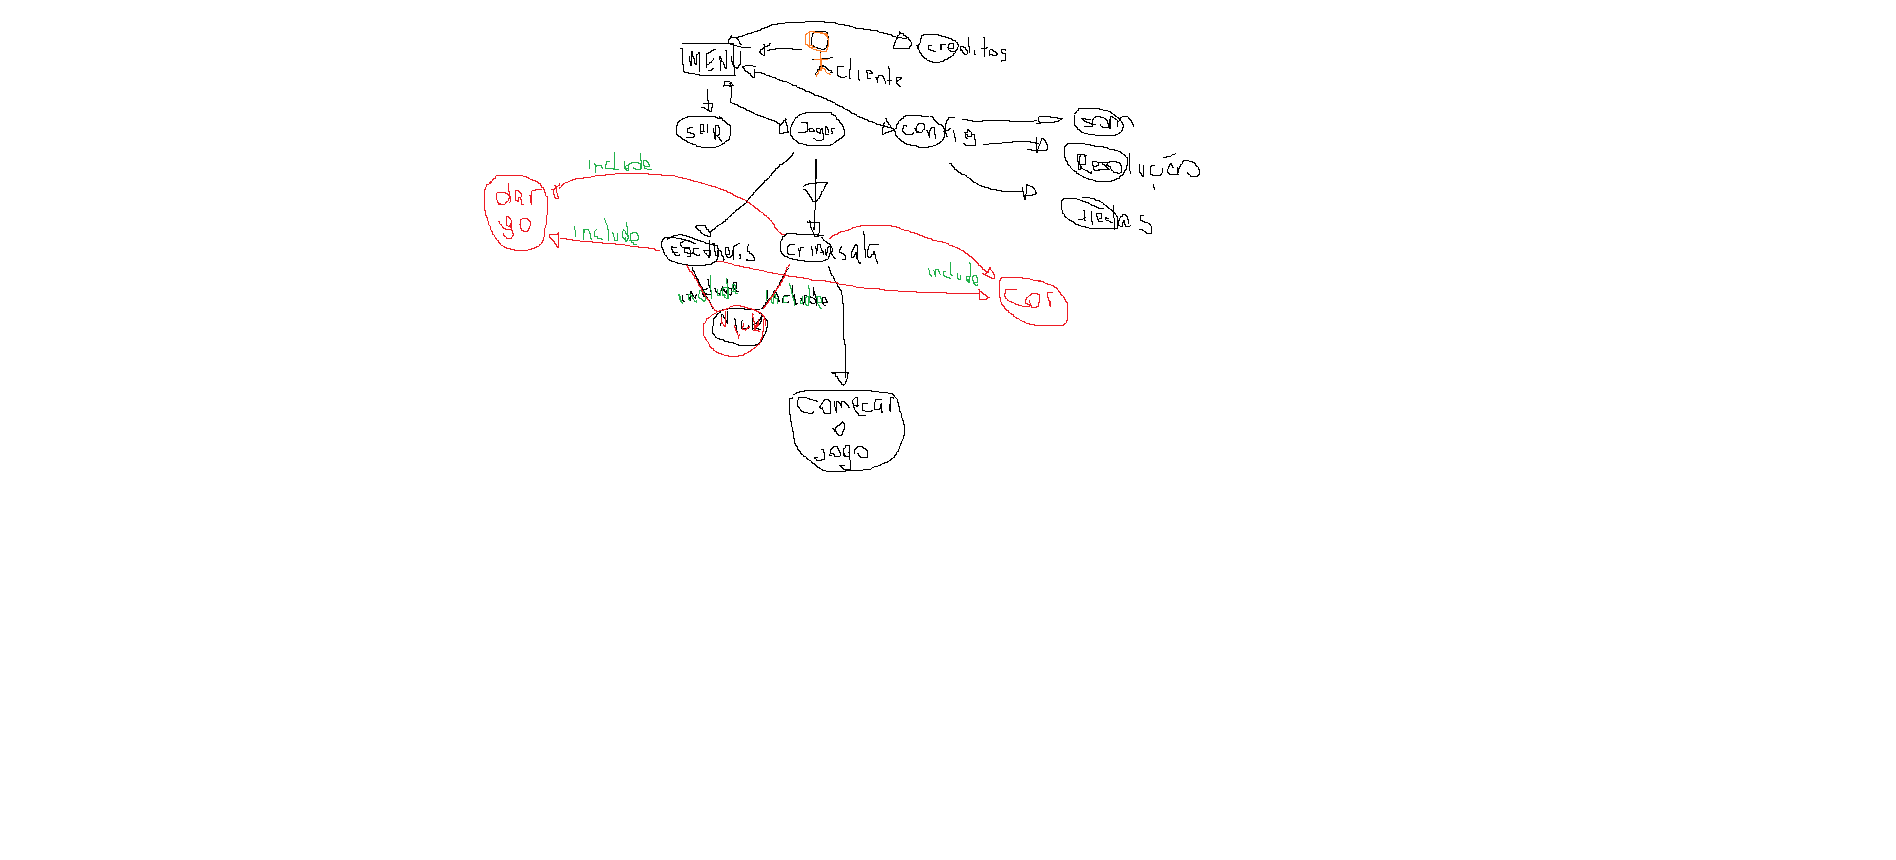 MENU
creditos
cliente
sair
Jogar
config
som
Resolução
include
dar
go
include
criar sala
include
cor
include
include
Nick
começar
o
jogo